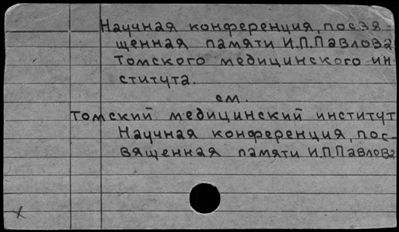 Научная конференция, посвя-
щенная памяти И.П.Павлова
Томского медицинского ин-
ститута.
см.
Томский медицинский институт
Научная конференция, пос-
вященная памяти И.П.Павлова
x